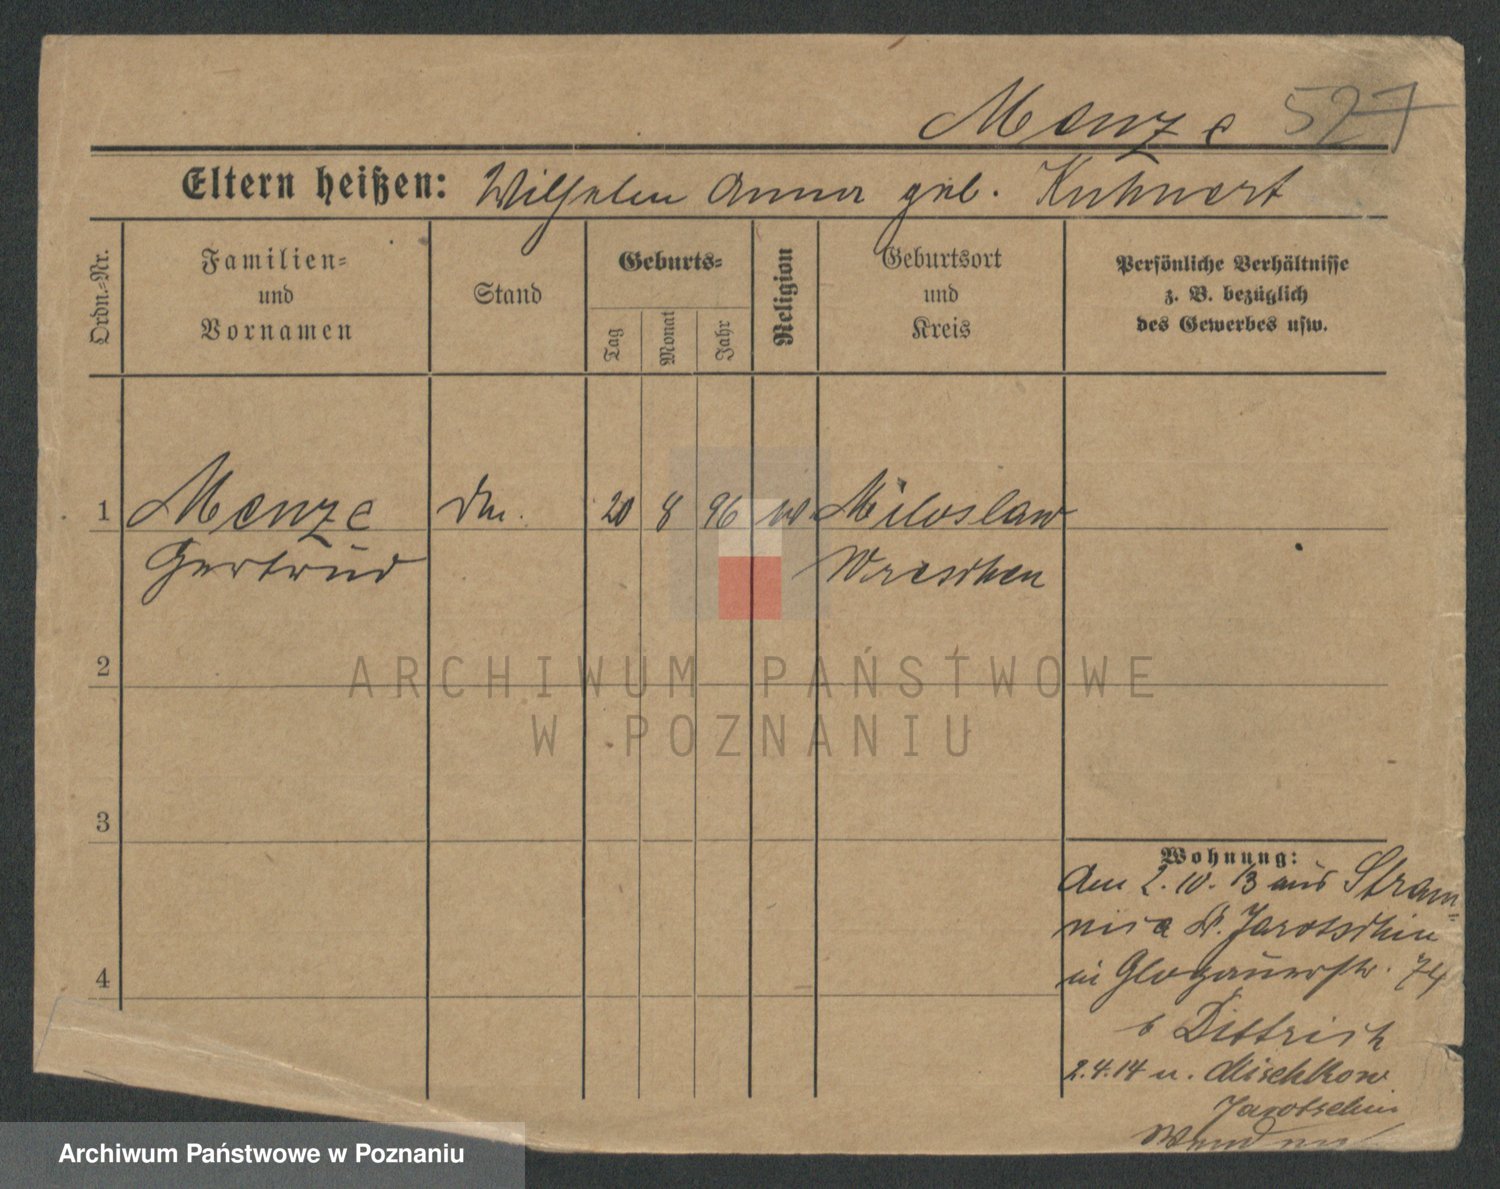 Menze 527
Eltern heißen: Wilhelm Anna geb. Kuhnert
Ordn.-Nr.
Familien-
und
Vornamen
Stand
Geburts-
Tag
Monat
Jahr
Religion
Geburtsort
und
Kreis
Persönliche Verhältnisse
z. B. bezüglich
des Gewerbes usw.
1 Menze 20 8 96 Miloslaw
Gertrud Wreschen
2
3
4
Wohnung:
Am 2.10.13 aus Stram-
nica Kr. Jarotschin
in Glogauerstr. 74
b Dittrich
2.4.14 n. Mieschkow
Jarotschin
ARCHIWUM PAŃSTWOWE
W POZNANIU
Archiwum Państwowe w Poznaniu